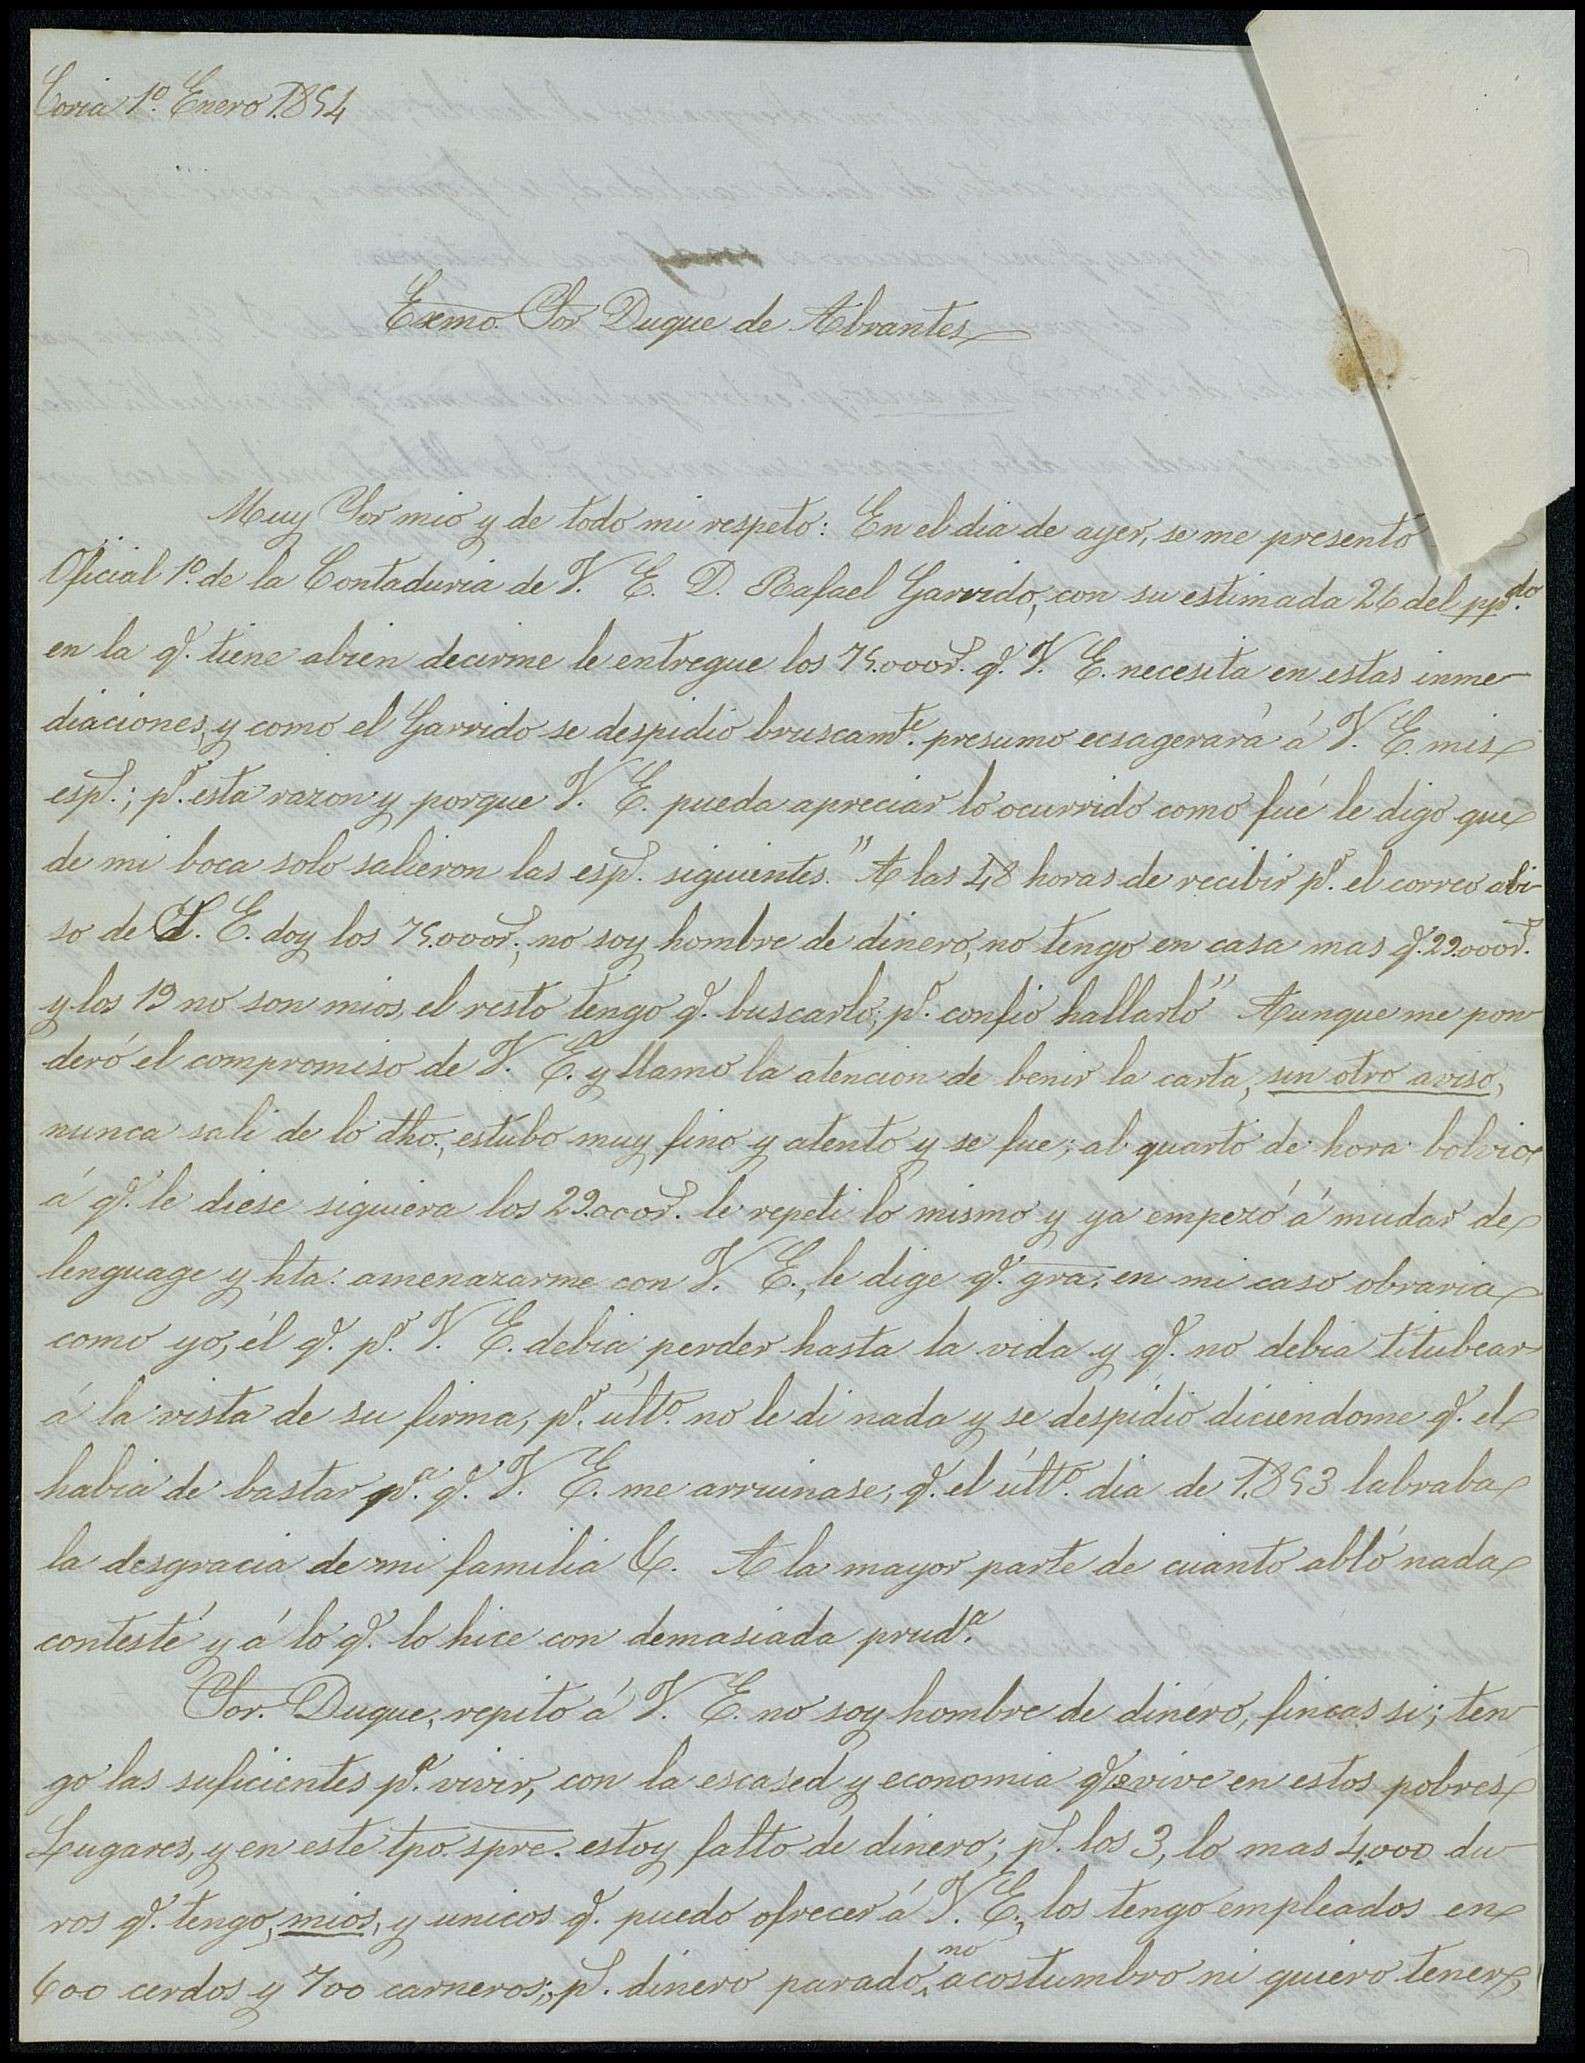 Coria 1º. Enero 1.854
Exmo. Sor Duque de Abrantes
Muy Sor mio y de todo mi respeto: En el dia de ayer, se me presentó
Oficial 1º. de la Contaduria de V. E. D. Rafael Garrido, con su estimada 26 del ppdo.
en la q.e tiene abien decirme le entregue los 75.000 r.s q.e V. E. necesita en estas inme
diaciones, y como el Garrido se despidio bruscamte. presumo ecsagerará á V. E. mis
esps.; pr. esta razon y porque V. E. pueda apreciar lo ocurrido como fué le digo que
de mi boca solo salieron las esps. siguientes. "A las 48 horas de recibir pr. el correo abi-
so de V. E. doy los 75.000 r.s; no soy hombre de dinero, no tengo en casa mas q.e 29.000 r.s
y los 19 no son mios, el resto tengo q.e buscarlo; po. confio hallarlo" Aunque me pon
deró el compromiso de V. E. y llamo la atencion de benir la carta, sin otro aviso,
nunca sali de lo dho.; estubo muy fino y atento y se fue; al quarto de hora bolvio
á q.e le diese siguiera los 29.000 r.s le repeti lo mismo y ya empezó á mudar de
lenguage y hta. amenazarme con V. E., le dige q.e gra. en mi caso obraria
como yo, él q.e pr. V. E. debia perder hasta la vida y q.e no debia titubear
á la vista de su firma, pr. últo. no le di nada y se despidió diciendome q.e el
habia de bastar pa. q.e V. E. me arruinase; q.e el últo. dia de 1.853 labraba
la desgracia de mi familia &. A la mayor parte de cuanto abló nada
contesté y á lo q.e lo hice con demasiada pruda.
Sor. Duque, repito á V. E. no soy hombre de dinero, fincas si; ten
go las suficientes pa. vivir, con la escased y economia q.e se vive en estos pobres
Lugares, y en este tpo. spre. estoy falto de dinero; ps. los 3, lo mas 4.000 du
ros q.e tengo, mios, y unicos q.e puedo ofrecer á V. E., los tengo empleados en
600 cerdos y 700 carneros; ps. dinero parado, no acostumbro ni quiero tener